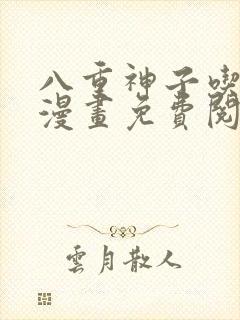 八重神子喫
漫畫免費閱
雲月散人